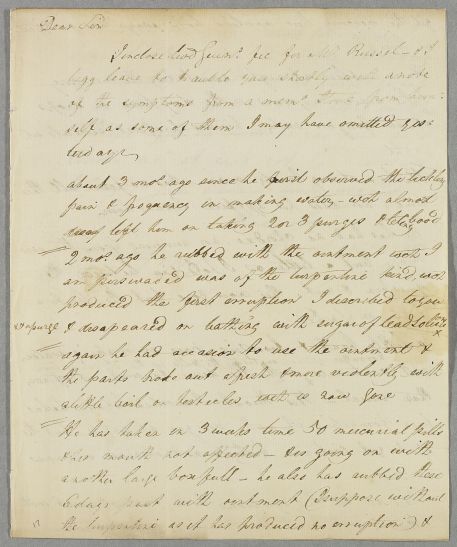 Dear Sir
I inclose two Guin.s fee for Mr Russel - & I
begg leave to trouble you shortly with a note
of the symptoms from a mem. from him
self as some of them I may have omitted yes
terday,
about 3 mos ago since he first observed the tickling
pain & frequency in making water - wch almost
left him on taking 2 or 3 purges &
2 mos ago he rubbed with the ointment wch I
am perswaded was of the turpentine kind, wch
produced the first erruption I described to you
& disapeared on bathing with sugar of lead
again he had accasion to use the ointment &
the parts broke out afresh & more violently with
a little boil on testecles wch is now gone
He has taken in 3 weeks time 50 mercurial pills
& his mouth not affected - & is going on with
another large box full - he also has rubbed these
6 days past with ointment (I suppose without
the turpentine as it has produced no erruption) &